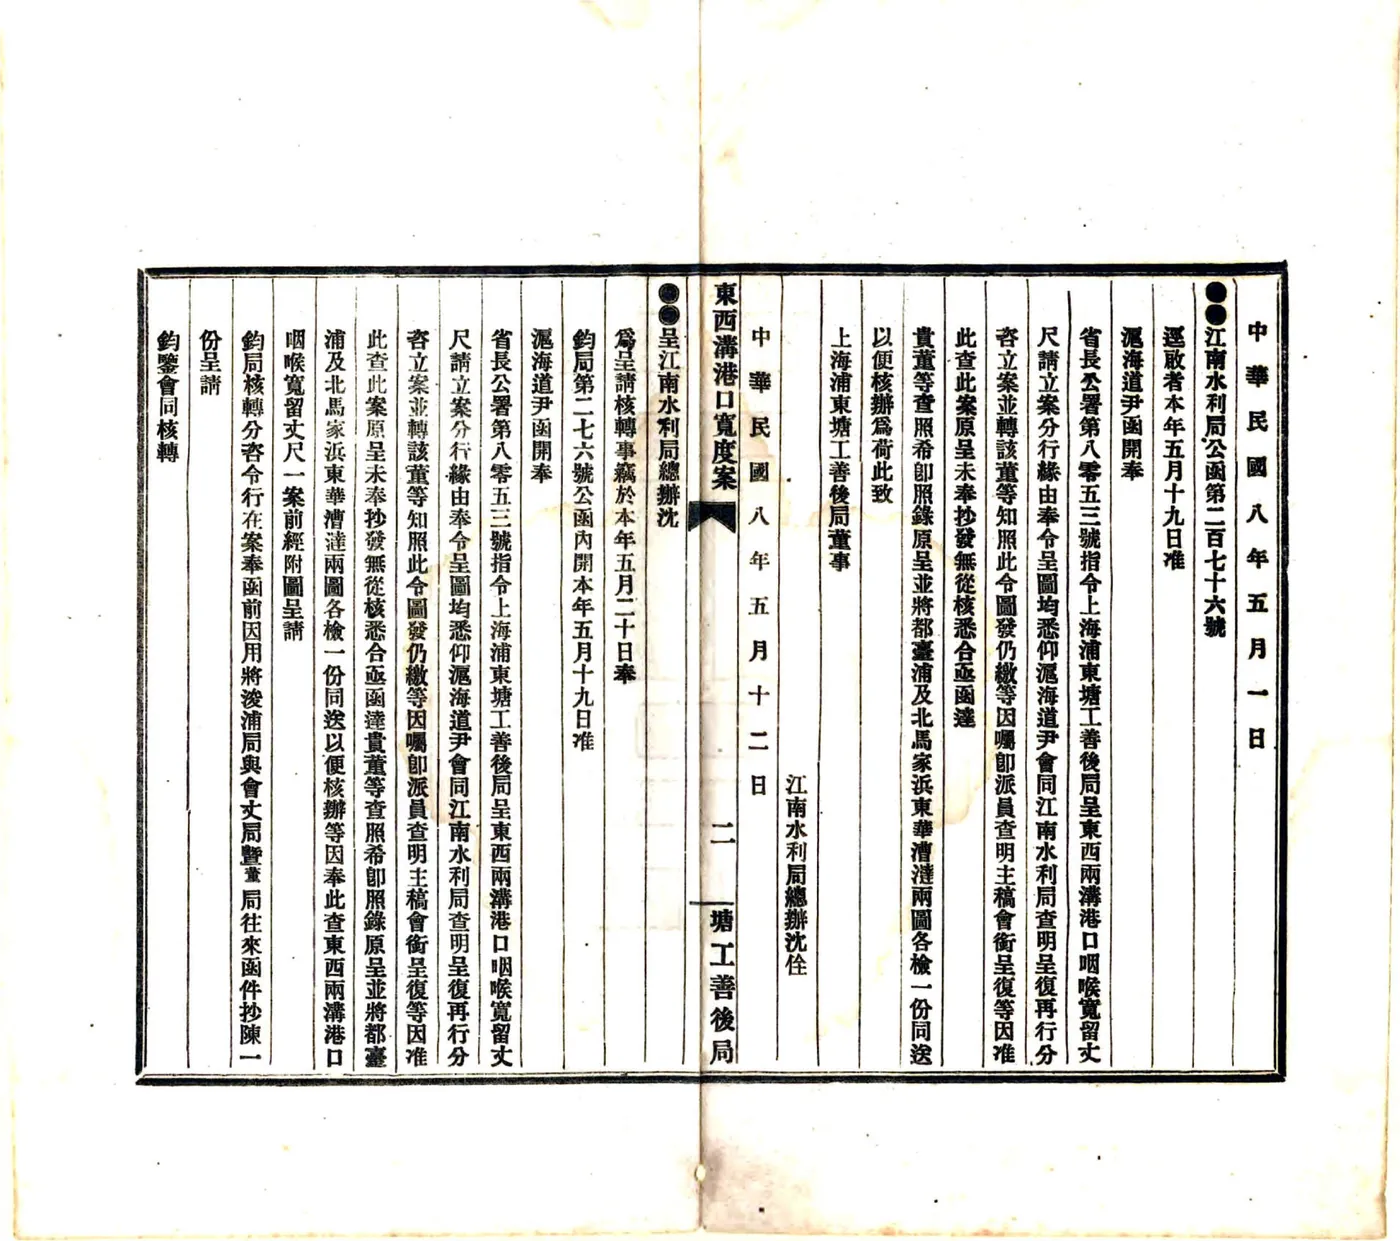 中華民國八年五月一日
●●江南水利局公函第二百七十六號
逕啟者本年五月十九日准
滬海道尹函開奉
省長公署第八零五三號指令上海浦東塘工善後局呈東西兩溝港口咽喉寬留丈
尺請立案分行緣由奉令呈圖均悉仰滬海道尹會同江南水利局查明呈復再行分
咨立案並轉該董等知照此令圖發仍繳等因囑卽派員查明主稿會銜呈復等因准
此查此案原呈未奉抄發無從核悉合亟函達
貴董等查照希卽照錄原呈並將都臺浦及北馬家浜東華漕澾兩圖各檢一份同送
以便核辦爲荷此致
上海浦東塘工善後局董事
江南水利局總辦沈佺
中華民國八年五月十二日
東西溝港口寬度案
二
塘工善後局
●●呈江南水利局總辦沈
爲呈請核轉事竊於本年五月二十日奉
鈞局第二七六號公函內開本年五月十九日准
滬海道尹函開奉
省長公署第八零五三號指令上海浦東塘工善後局呈東西兩溝港口咽喉寬留丈
尺請立案分行緣由奉令呈圖均悉仰滬海道尹會同江南水利局查明呈復再行分
咨立案並轉該董等知照此令圖發仍繳等因囑卽派員查明主稿會銜呈復等因准
此查此案原呈未奉抄發無從核悉合亟函達貴董等查照希卽照錄原呈並將都臺
浦及北馬家浜東華漕澾兩圖各檢一份同送以便核辦等因奉此查東西兩溝港口
咽喉寬留丈尺一案前經附圖呈請
鈞局核轉分咨令行在案奉函前因用將浚浦局與會丈局暨董局往來函件抄陳一
份呈請
鈞鑒會同核轉